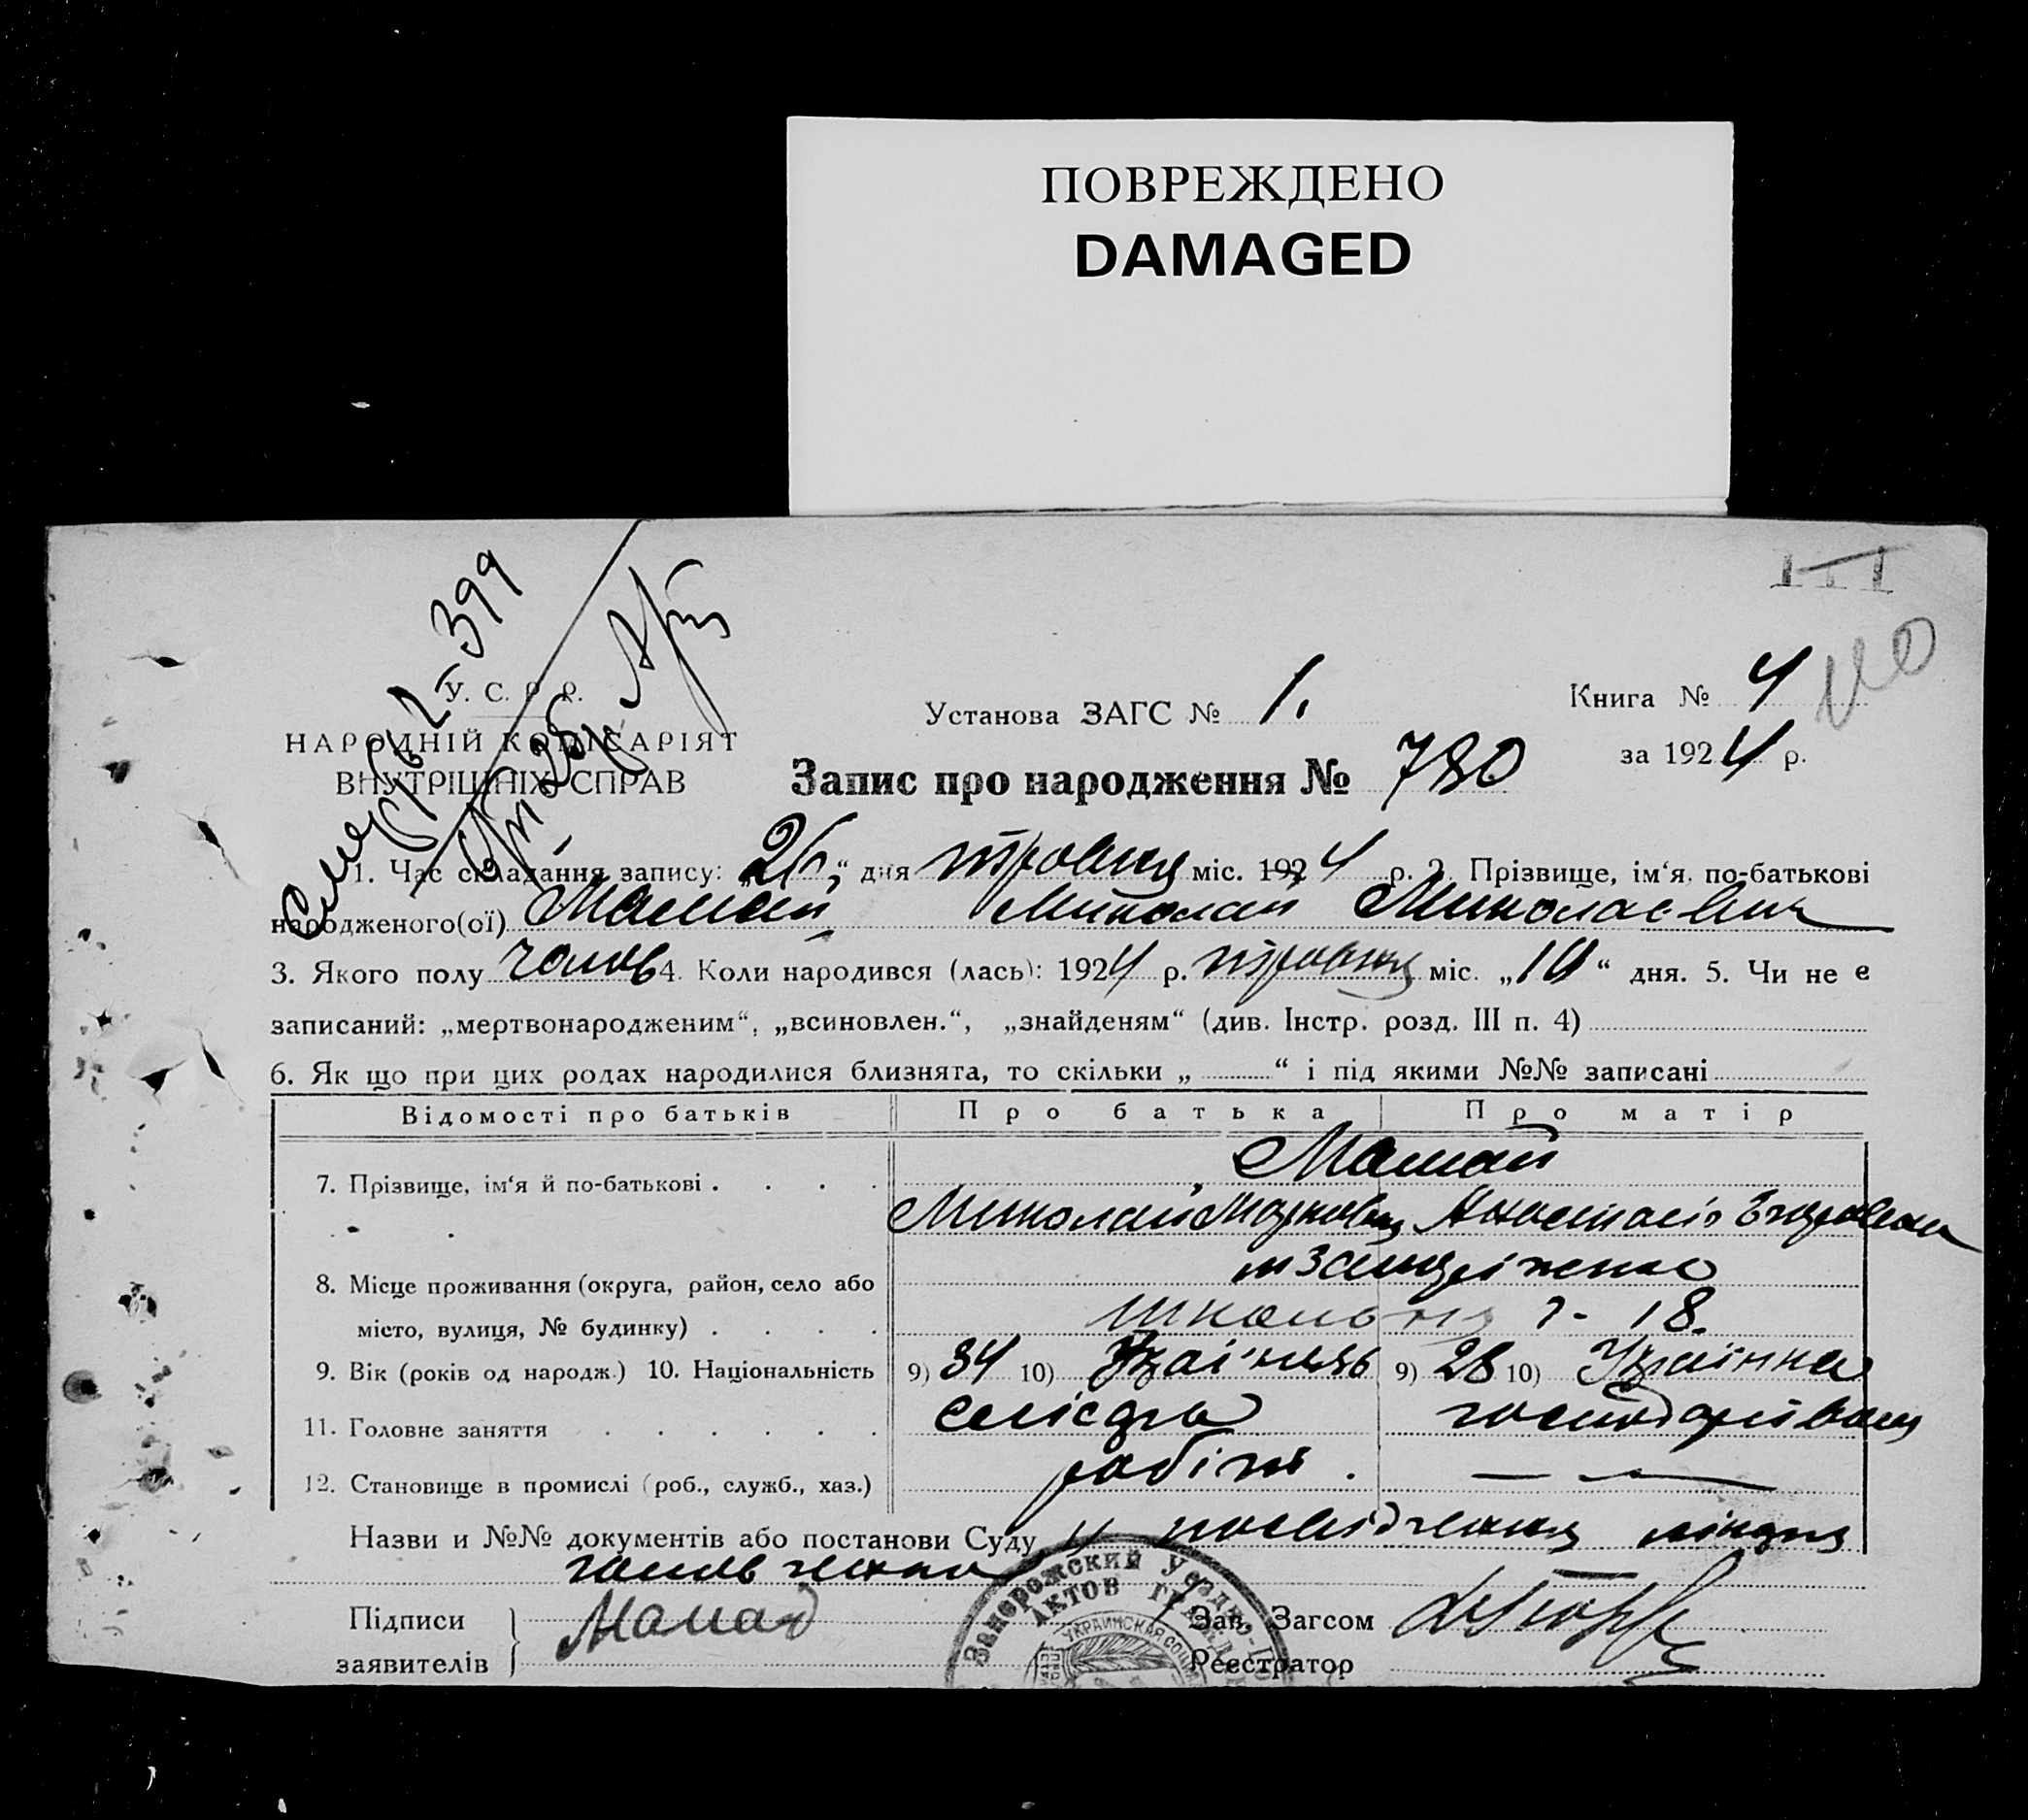 ПОВРЕЖДЕНО
DAMAGED
III
110
399
У. С. Р. Р.
НАРОДНІЙ КОМІСАРІЯТ
ВНУТРІШНІХ СПРАВ
Установа ЗАГС № 1.
Книга № 4
за 1924 р.
Запис про народження № 780
1. Час складання запису: „26“ дня травня міс. 1924 р. 2. Прізвище, ім‘я, по-батькові
народженого(ої) Мамай Миколай Миколаєвич
3. Якого полу чолов 4. Коли народився (лась): 1924 р. травня міс. „10“ дня. 5. Чи не є
записаний: „мертвонародженим“, „всиновлен.“, „знайденям“ (див. Інстр. розд. III п. 4)
6. Як що при цих родах народилися близнята, то скільки „ “ і під якими №№ записані
Відомості про батьків Про батька Про матір
Мамай
7. Прізвище, ім‘я й по-батькові
Миколай Маркович Анастасія
м Запоріжжа
8. Місце проживання (округа, район, село або
місто, вулиця, № будинку)
Школьна 18.
9. Вік (років од народж.) 10. Національність 9) 34 10) Украінець 9) 28 10) Украінка
11. Головне заняття слюсарь господарювання
12. Становище в промислі (роб., служб., хаз.) робітн. —
Назви и №№ документів або постанови Суду посвідчення лікаря
Підписи
заявителів
Мамай
Зав. Загсом
Реєстратор
Запорожский Уездно-
АКТОВ ГРАЖД
УКРАИНСКАЯ СОЦИ